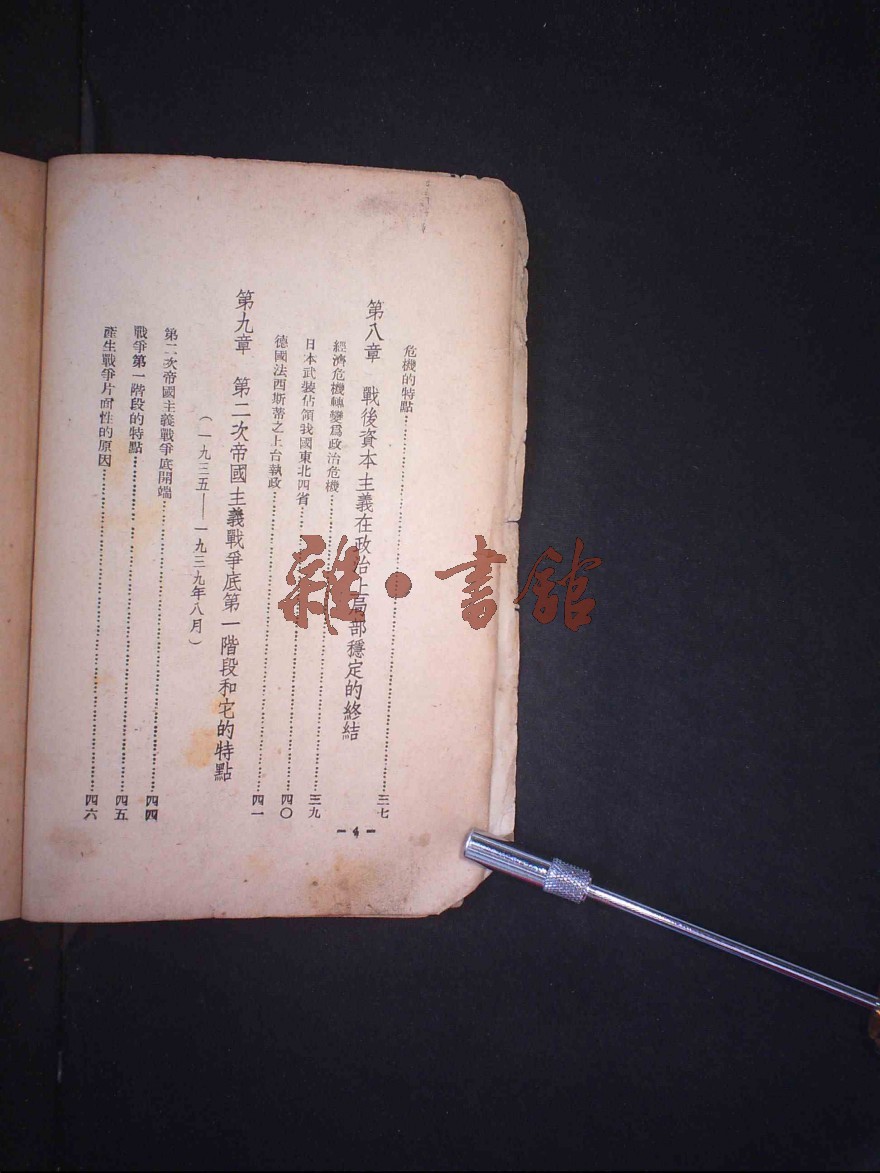 危機的特點……三七
第八章　戰後資本主義在政治上局部穩定的終結
經濟危機轉變爲政治危機……三九
日本武裝佔領我國東北四省……四〇
德國法西斯蒂之上台執政……四一
第九章　第二次帝國主義戰爭底第一階段和它的特點
（一九三五——一九三九年八月）
第二次帝國主義戰爭底開端……四四
戰爭第一階段的特點……四五
產生戰爭片面性的原因……四六
－4－
雜·書館